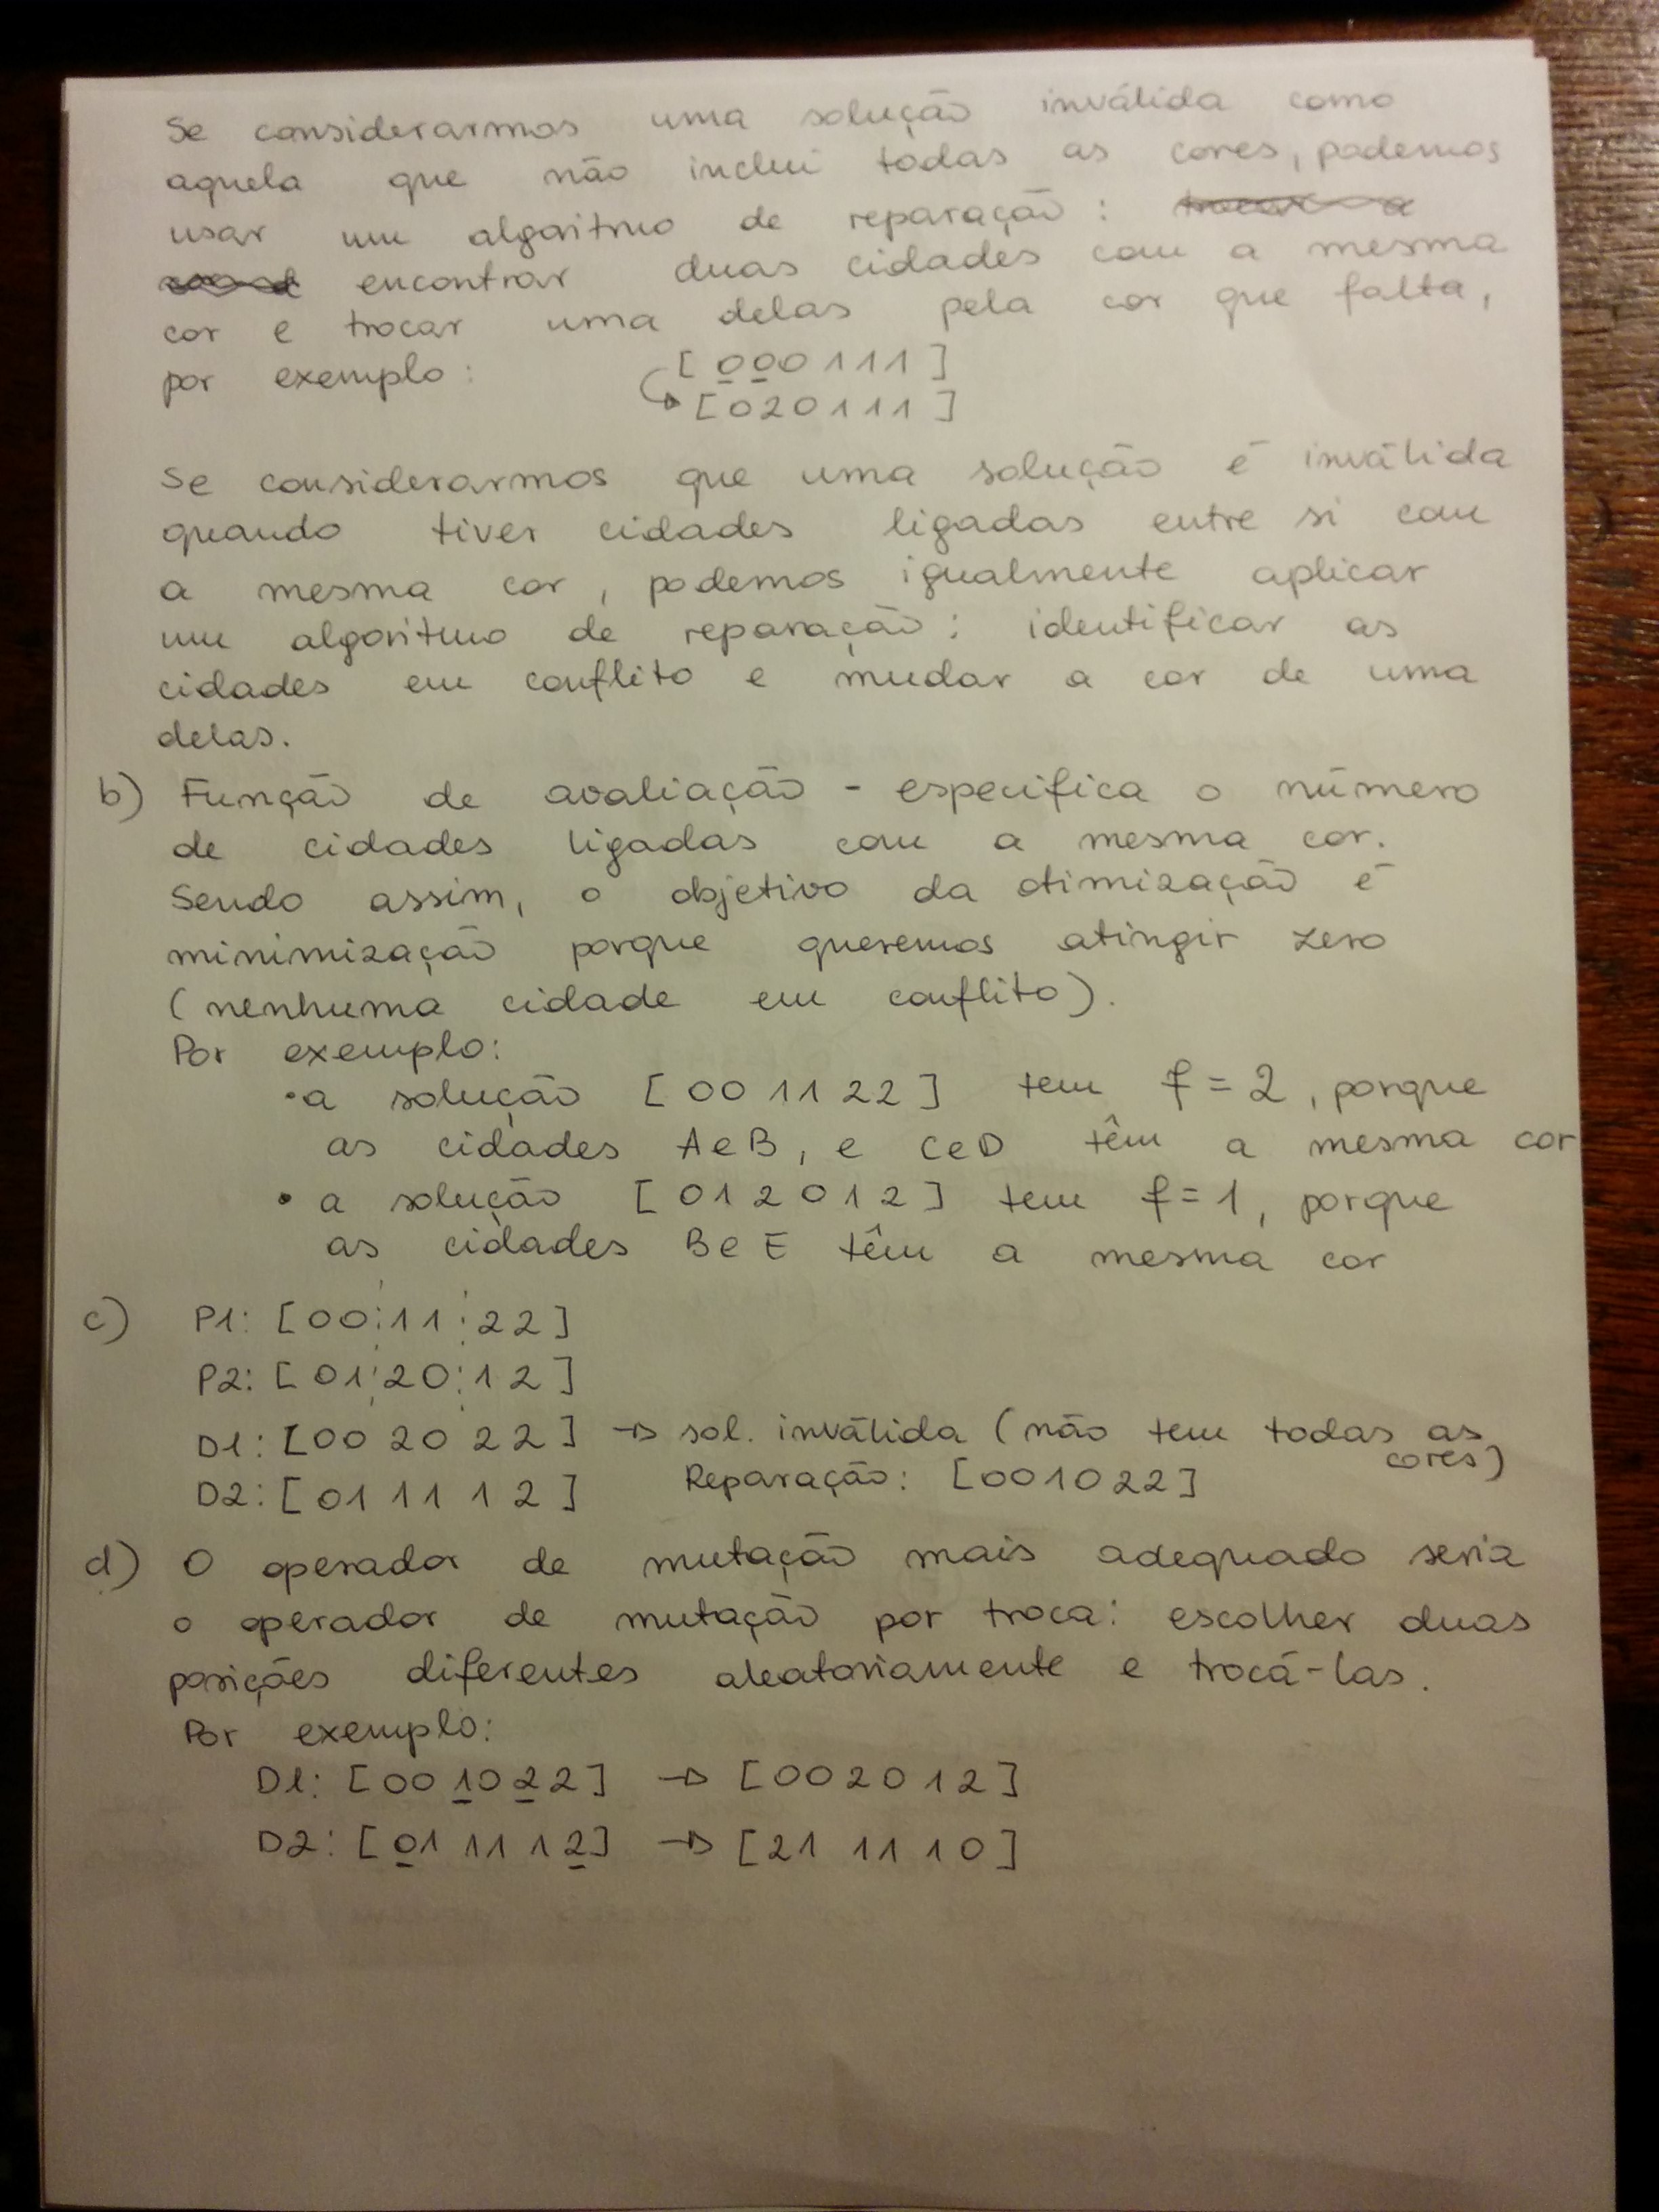 Se considerarmos uma solução inválida como
aquela que não inclui todas as cores, podemos
usar um algoritmo de reparação:
encontrar duas cidades com a mesma
cor e trocar uma delas pela cor que falta,
por exemplo: [000111]
[020111]
Se considerarmos que uma solução é inválida
quando tiver cidades ligadas entre si com
a mesma cor, podemos igualmente aplicar
um algoritmo de reparação: identificar as
cidades em conflito e mudar a cor de uma
delas.
b) Função de avaliação - especifica o número
de cidades ligadas com a mesma cor.
Sendo assim, o objetivo da otimização é
minimização porque queremos atingir zero
(nenhuma cidade em conflito).
Por exemplo:
• a solução [00 11 22] tem f = 2, porque
as cidades A e B, e C e D têm a mesma cor
• a solução [012012] tem f = 1, porque
as cidades B e E têm a mesma cor
c) P1: [00¦11¦22]
P2: [01¦20¦12]
D1: [00 20 22] → sol. inválida (não tem todas as cores)
D2: [01 11 12] Reparação: [001022]
d) O operador de mutação mais adequado seria
o operador de mutação por troca: escolher duas
posições diferentes aleatoriamente e trocá-las.
Por exemplo:
D1: [001022] → [002012]
D2: [01 11 12] → [21 11 10]